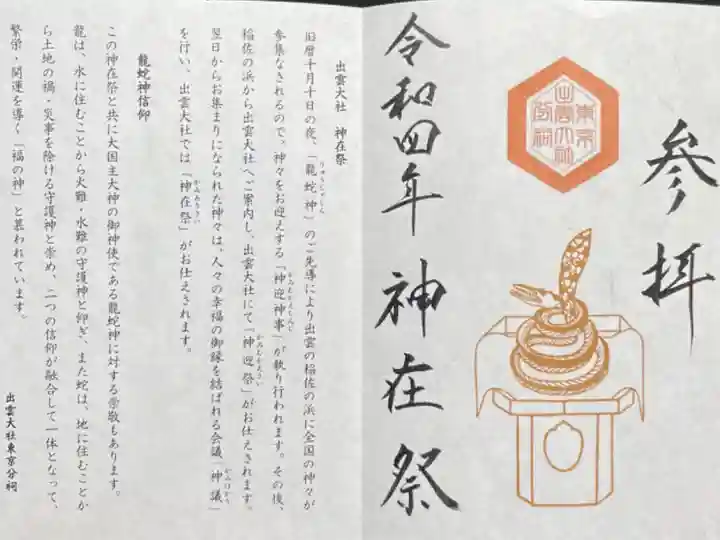 参拝
東京
出雲大社
分祠
令和四年 神在祭
出雲大社 神在祭
旧暦十月十日の夜、「龍蛇神」のご先導により出雲の稲佐の浜に全国の神々が
参集なされるので。神々をお迎えする「神迎神事」が執り行われます。その後、
稲佐の浜から出雲大社へご案内し、出雲大社にて「神迎祭」がお仕えされます。
翌日からお集まりになられた神々は、人々の幸福の御縁を結ばれる会議「神議」
を行い、出雲大社では「神在祭」がお仕えされます。
龍蛇神信仰
この神在祭と共に大国主大神の御神使である龍蛇神に対する崇敬もあります。
龍は、水に住むことから火難・水難の守護神と仰ぎ、また蛇は、地に住むことか
ら土地の禍・災事を除ける守護神と崇め、二つの信仰が融合して一体となって、
繁栄・開運を導く「福の神」と慕われています。
出雲大社東京分祠